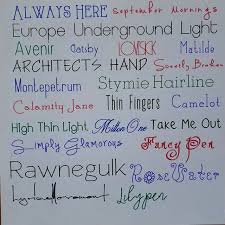 ALWAYS HERE September Mornings
Europe Underground Light
Avenir Gatsby LOVESICK Matilde
ARCHITECTS HAND Secretly Broken
Montepetrum Stymie Hairline
Calamity Jane Thin Fingers Camelot
High Thin Light Million One Take Me Out
Simply Glamorous Fancy Pen
Rawnegulk RoseWater
Lilypen